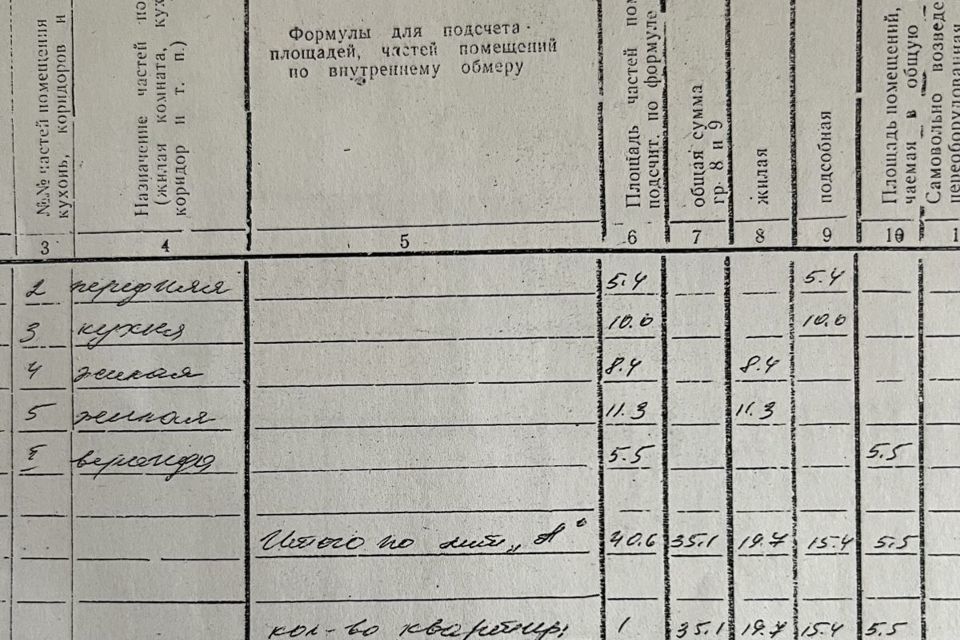 №№ частей помещения
кухонь, коридоров и
Назначение частей
(жилая комната,
коридор и т. п.)
Формулы для подсчета
площадей, частей помещений
по внутреннему обмеру
Площадь частей
подсчит. по формуле
общая сумма
гр. 8 и 9
жилая
подсобная
Площадь помещений,
чаемая в общую
Самовольно возведе
переоборудованная
3 4 5 6 7 8 9 10 1
2 передняя 5.4 5.4
3 кухня 10.0 10.0
4 жилая 8.4 8.4
5 жилая 11.3 11.3
I веранда 5.5 5.5
Итого по лит „А“ 40.6 35.1 19.7 15.4 5.5
кол-во квартир: 1 35.1 19.7 15.4 5.5